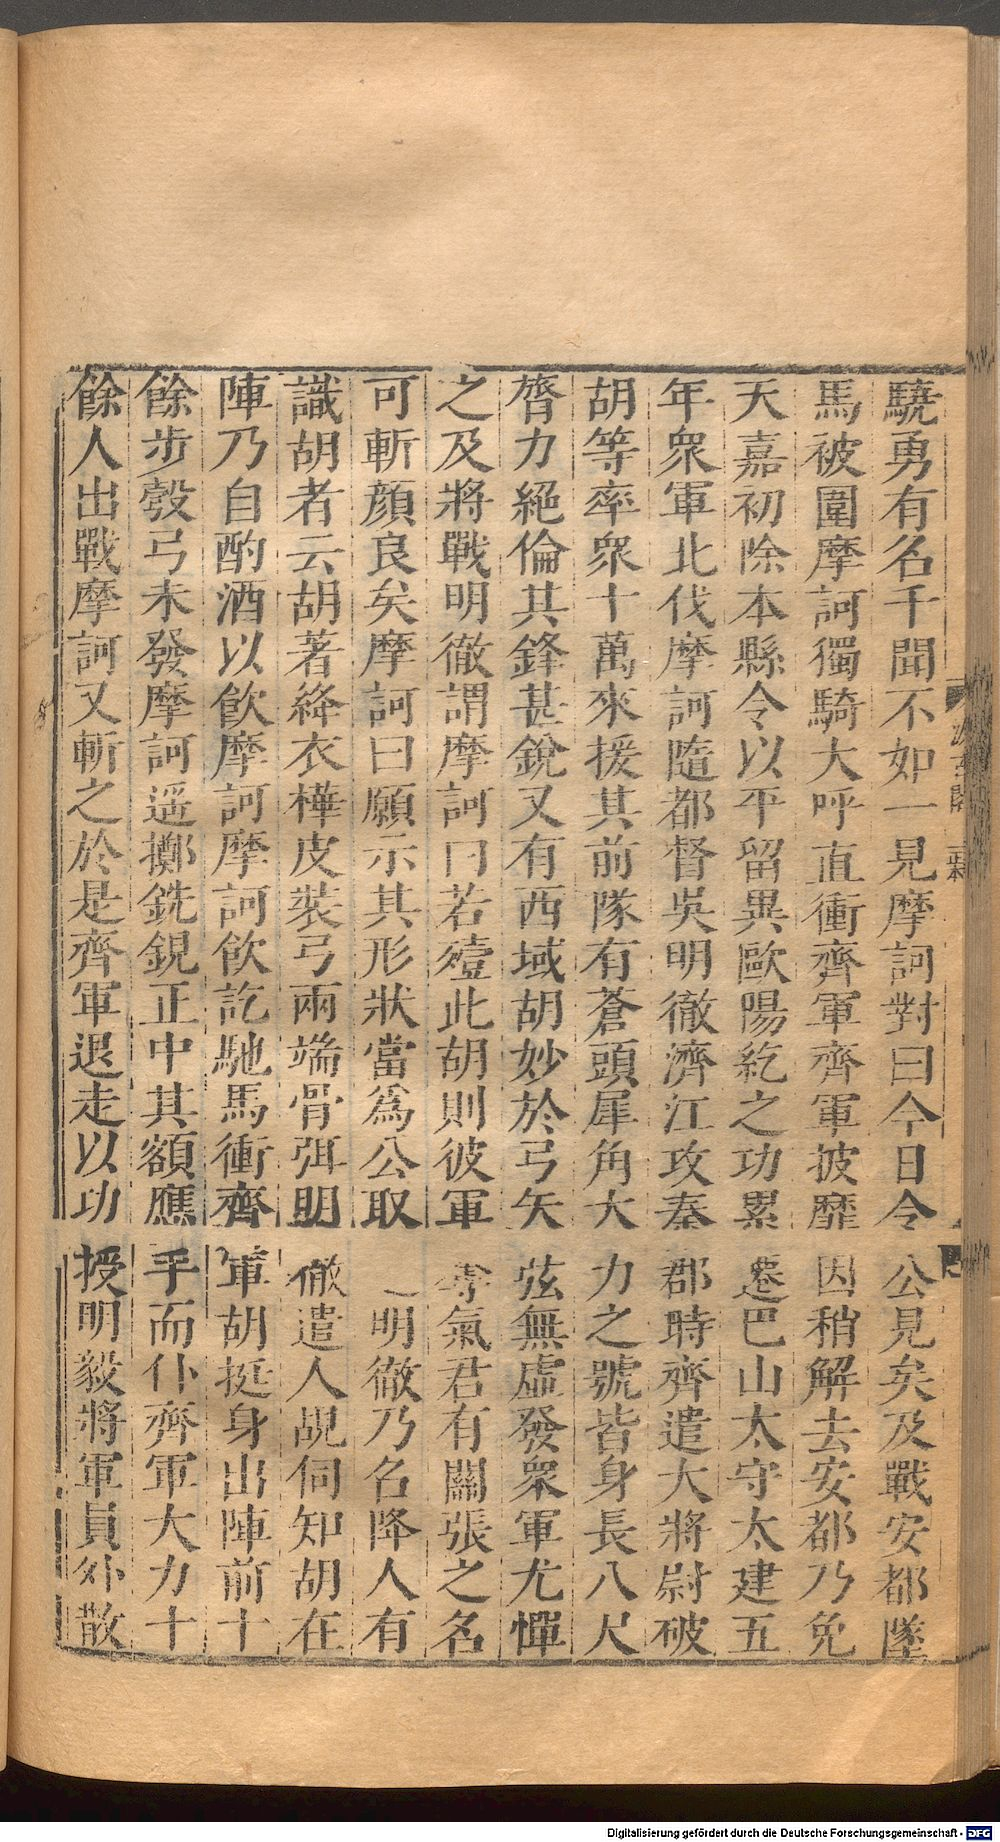 驍勇有名千聞不如一見摩訶對曰今日令公見矣及戰安都墜
馬被圍摩訶獨騎大呼直衝齊軍齊軍披靡因稍解去安都乃免
天嘉初除本縣令以平留異歐陽紇之功累遷巴山太守太建五
年衆軍北伐摩訶隨都督吳明徹濟江攻秦郡時齊遣大將尉破
胡等率衆十萬來援其前隊有蒼頭犀角大力之號皆身長八尺
膂力絕倫其鋒甚銳又有西域胡妙於弓矢弦無虛發衆軍尤憚
之及將戰明徹謂摩訶曰若殪此胡則彼軍奪氣君有關張之名
可斬顔良矣摩訶曰願示其形狀當爲公取之明徹乃名降人有
識胡者云胡著絳衣樺皮裝弓兩端骨弭明徹遣人覘伺知胡在
陣乃自酌酒以飮摩訶摩訶飮訖馳馬衝齊軍胡挺身出陣前十
餘步彀弓未發摩訶遥擲銑鋧正中其額應手而仆齊軍大力十
餘人出戰摩訶又斬之於是齊軍退走以功授明毅將軍員外散
Digitalisierung gefördert durch die Deutsche Forschungsgemeinschaft - DFG